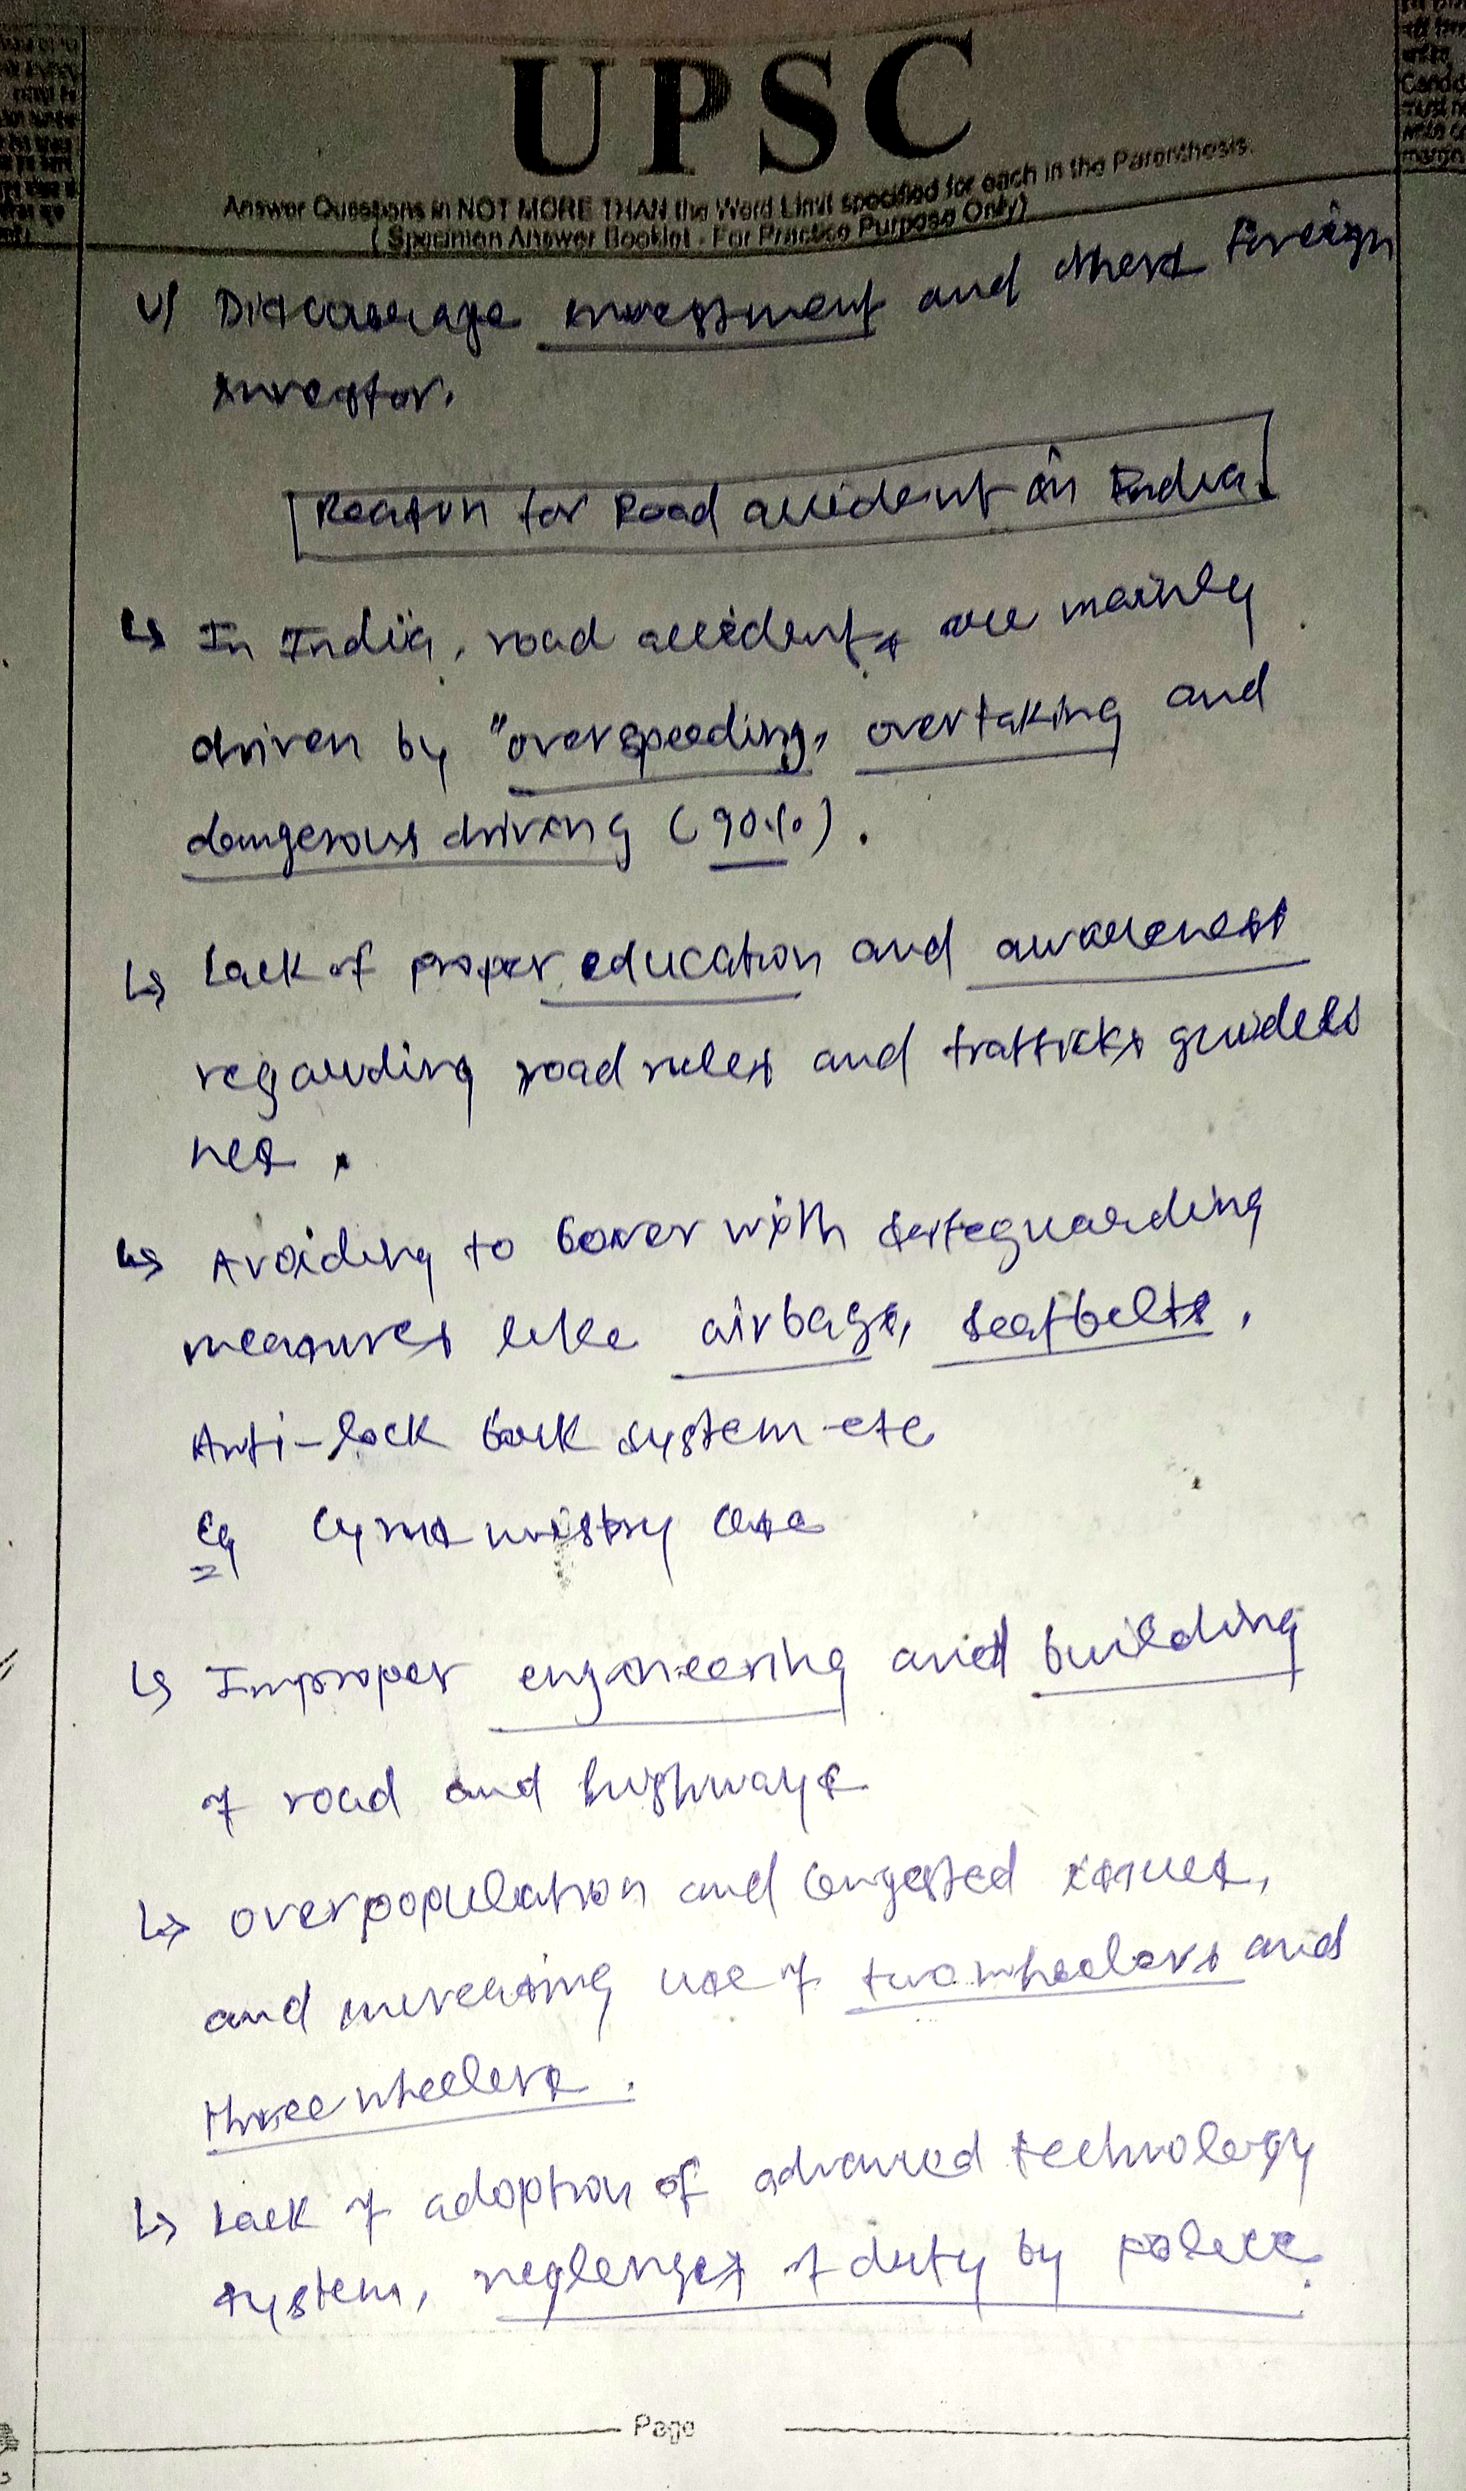 UPSC
Answer Questions in NOT MORE THAN the Word Limit specified for each in the Parenthesis.
( Specimen Answer Booklet - For Practice Purpose Only)
v) Discourage investment and others foreign
investor.
Reason for Road accident in India.
↳ In India, road accidents are mainly
driven by "overspeeding, overtaking and
dangerous driving (90%).
↳ Lack of proper education and awareness
regarding road rules and trafficks guideli
nes.
↳ Avoiding to cover with safeguarding
measures like airbags, seatbelts,
Anti-lock system etc
Eg Cyrus mistry case
↳ Improper engineering and building
of road and highways
↳ overpopulation and congested issues,
and increasing use of two wheelers and
three wheelers.
↳ Lack of adoption of advanced technology
system, of duty by police.
Page